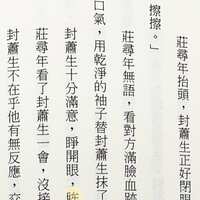 擦擦。」
莊尋年抬頭，封蕭生正好閉眼
莊尋年無語，看對方滿臉血跡
口氣，用乾淨的袖子替封蕭生抹了
封蕭生十分滿意，睜開眼，
莊尋年看了封蕭生一會，沒接
封蕭生不在乎他有無反應，